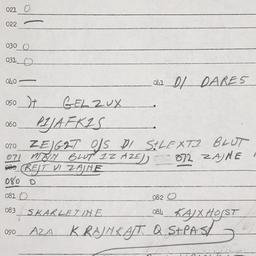 021 O
022 —
030 O
031 O
040 — 041 DI DARES
050 H GELZUX .
060 PIJAFKIS .
070 ZEJGT O/S DI S:LEXTI BLUT
071 BLUT IZ AZEJ) 072 ZAJNE
(REJT VI ZAJNE
080 O
081 O 082 O
083 SKARLETINE 084 KAJXHOJST
090 AZA KRAJNKAJT Q S+PAS)